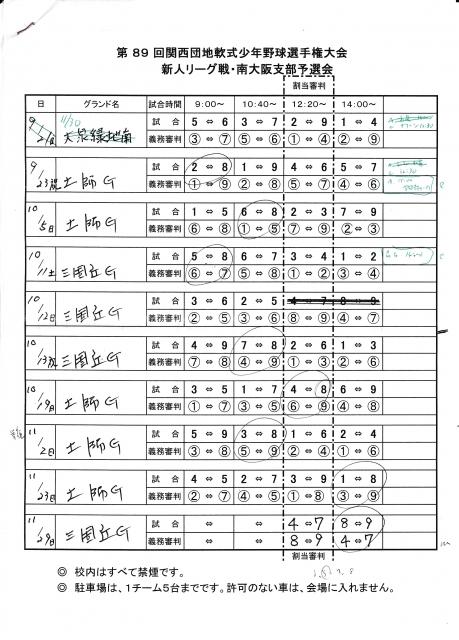 第 89 回関西団地軟式少年野球選手権大会
新人リーグ戦・南大阪支部予選会
割当審判
日 グランド名 試合時間 9:00～ 10:40～ 12:20～ 14:00～
11/30
試 合 5 ⇔ 6 3 ⇔ 7 2 ⇔ 9 1 ⇔ 4
義務審判 ③ ⇔ ⑦ ⑤ ⇔ ⑥ ① ⇔ ④ ② ⇔ ⑨
9/23祝 土師G 試 合 2 ⇔ 8 1 ⇔ 9 4 ⇔ 6 5 ⇔ 7
義務審判 ① ⇔ ⑨ ② ⇔ ⑧ ⑤ ⇔ ⑦ ④ ⇔ ⑥
10/5日 土師G 試 合 1 ⇔ 5 6 ⇔ 8 2 ⇔ 3 7 ⇔ 9
義務審判 ⑥ ⇔ ⑧ ① ⇔ ⑤ ⑦ ⇔ ⑨ ② ⇔ ③
10/11土 三国丘G 試 合 5 ⇔ 8 6 ⇔ 7 3 ⇔ 4 1 ⇔ 2
義務審判 ⑥ ⇔ ⑦ ⑤ ⇔ ⑧ ① ⇔ ② ③ ⇔ ④
10/12日 三国丘G 試 合 3 ⇔ 6 2 ⇔ 5 4 ⇔ 7 8 ⇔ 9
義務審判 ② ⇔ ⑤ ③ ⇔ ⑥ ⑧ ⇔ ⑨ ④ ⇔ ⑦
10/13祝 三国丘G 試 合 4 ⇔ 9 7 ⇔ 8 2 ⇔ 6 1 ⇔ 3
義務審判 ⑦ ⇔ ⑧ ④ ⇔ ⑨ ① ⇔ ③ ② ⇔ ⑥
10/19日 土師G 試 合 3 ⇔ 5 1 ⇔ 7 4 ⇔ 8 6 ⇔ 9
義務審判 ① ⇔ ⑦ ③ ⇔ ⑤ ⑥ ⇔ ⑨ ④ ⇔ ⑧
11/2日 土師G 試 合 5 ⇔ 9 3 ⇔ 8 1 ⇔ 6 2 ⇔ 4
義務審判 ③ ⇔ ⑧ ⑤ ⇔ ⑨ ② ⇔ ④ ① ⇔ ⑥
11/23日 土師G 試 合 4 ⇔ 5 2 ⇔ 7 3 ⇔ 9 1 ⇔ 8
義務審判 ② ⇔ ⑦ ④ ⇔ ⑤ ① ⇔ ⑧ ③ ⇔ ⑨
11/29日 三国丘G 試 合 ⇔ ⇔ 4 ⇔ 7 8 ⇔ 9
義務審判 ⇔ ⇔ 8 ⇔ 9 4 ⇔ 7
割当審判
◎ 校内はすべて禁煙です。
◎ 駐車場は、1チーム5台までです。許可のない車は、会場に入れません。